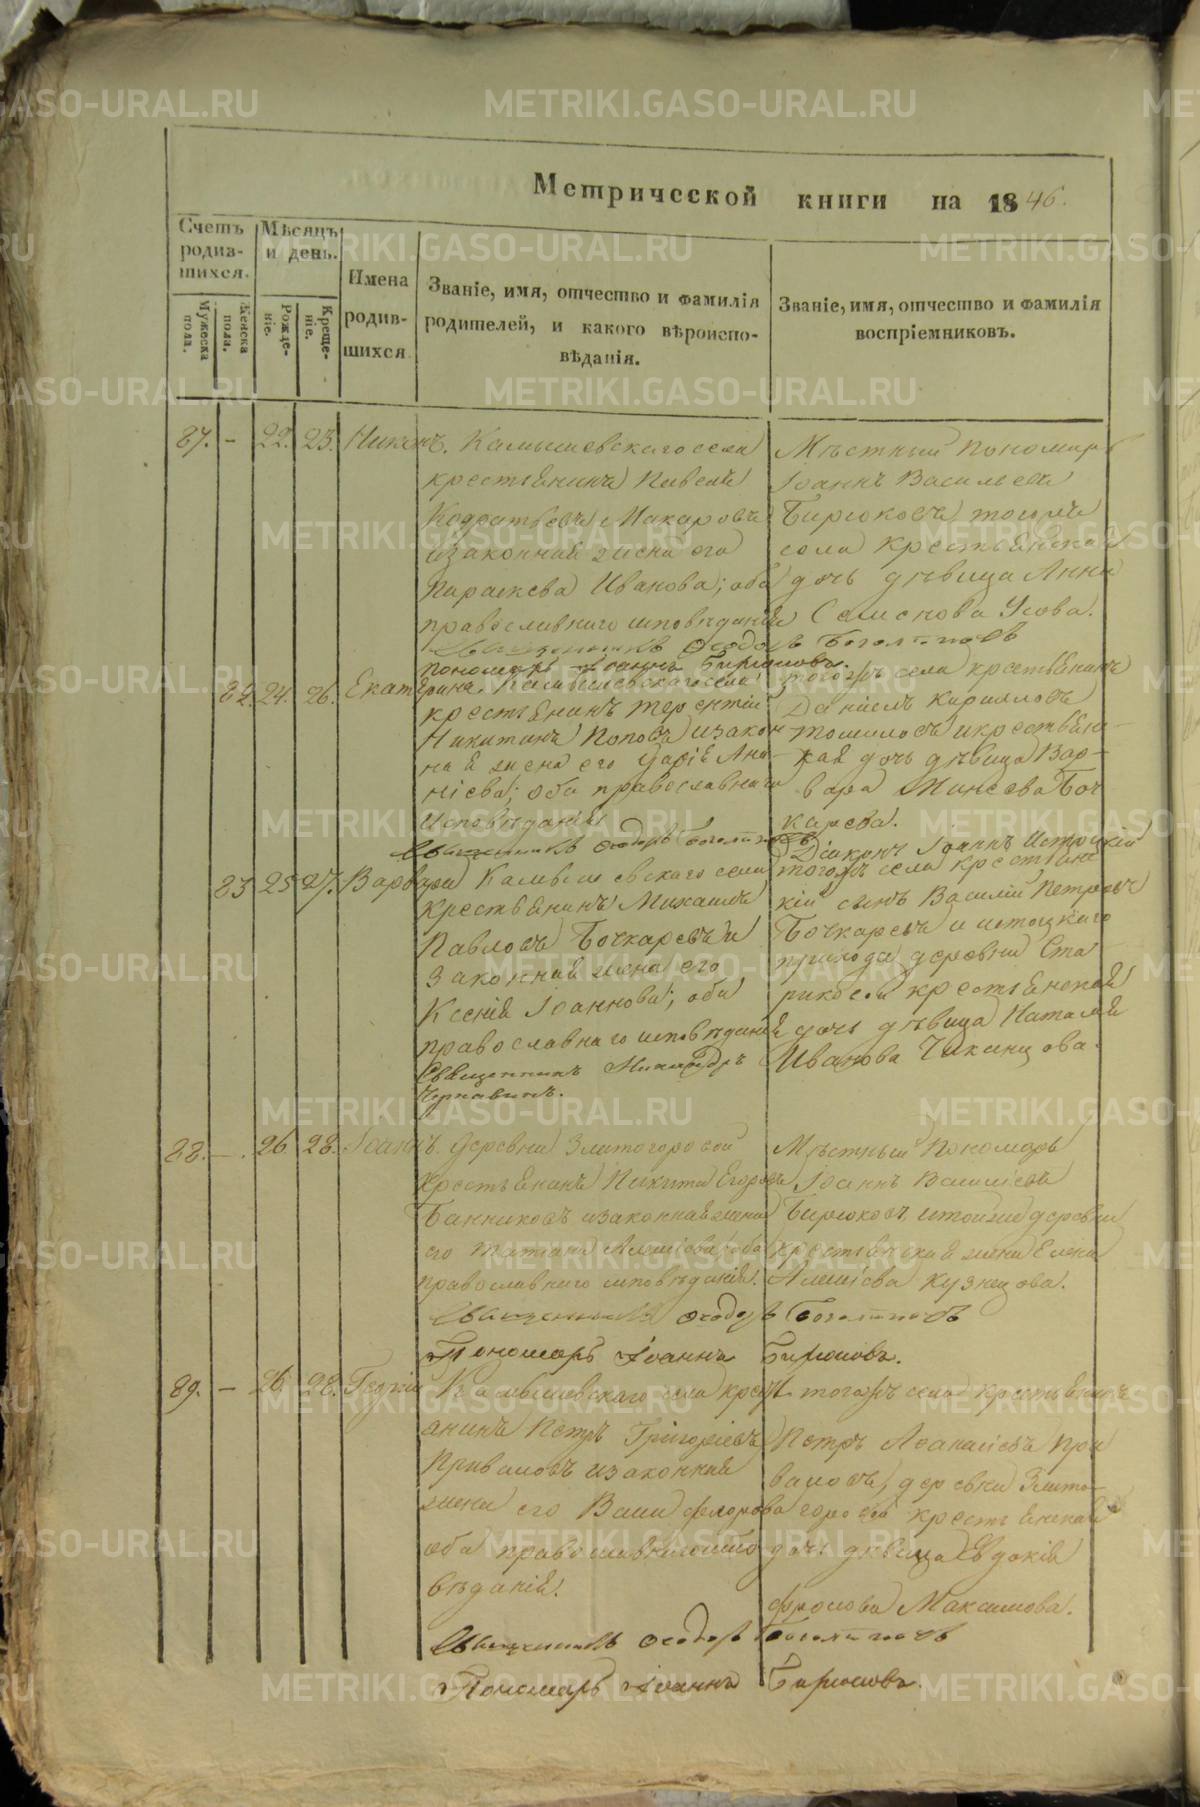 Метрической книги на 1846.
Счетъ родив-шихся.
Мѣсяцъ и день.
Имена родив-шихся
Званіе, имя, отчество и фамилія родителей, и какого вѣроиспо-вѣданія.
Званіе, имя, отчество и фамилія воспріемниковъ.
Мужеска пола.
Женска пола.
Рожде-ніе.
Креще-ніе.
87. - 22. 23. Никонъ.
Камышевскаго села
крестьянинъ Павелъ
Кодратьевъ Макаровъ
и законная жена его
Параскева Иванова; оба
православнаго исповѣданія
Мѣстный Пономарь
Іоаннъ Васильевъ
Бирюковъ того же
села крестьянская
дочь дѣвица Анна
Семенова Усова.
Священникъ Ѳеодоръ Боголѣповъ
Пономарь Іоаннъ Бирюковъ.
82. 24. 26. Екатерина.
Камышевскаго села
крестьянинъ Терентій
Никитинъ Поповъ и закон-
ная жена его Дарія Ана-
ніева; оба православнаго
исповѣданія
того же села крестьянинъ
Даніилъ Кириловъ
Томиловъ и крестьянс-
кая дочь дѣвица Вар-
вара Минеева Боч
карева.
Священникъ Ѳеодоръ Боголѣповъ
Діаконъ Іоаннъ
83 25 27. Варвара
Камышевскаго села
крестьянинъ Михаилъ
Павловъ Бочкаревъ и
законная жена его
Ксенія Іоаннова; оба
православнаго исповѣданія
того же села крестьянс
кій сынъ Василій Петровъ
Бочкаревъ и истоцкаго
прихода деревни Ста
риковой крестьянская
дочь дѣвица Наталія
Иванова Чиканцова.
Священникъ Никандръ
Чернавинъ.
88. - . 26. 28. Іоаннъ.
Деревни Златогоровой
крестьянинъ Никита Егоровъ
Банниковъ и законная жена
его Татіана Алексіева; оба
православнаго исповѣданія.
Мѣстный Пономарь
Іоаннъ Василіевъ
Бирюковъ и той же деревни
крестьянская жена Елена
Алексіева Кузнецова.
Священникъ Ѳеодоръ Боголѣповъ
Пономарь Іоаннъ Бирюковъ.
89. - 26. 28. Георгій
Камышевскаго села крест
янинъ Петръ Григоріевъ
Приваловъ и законная
жена его Флорова
оба православнаго испо
вѣданія.
того же села крестьянинъ
Петръ Аѳанасіевъ При
валовъ, деревни Злато-
горовой крестьянская
дочь дѣвица Евдокія
Фролова Максимова.
Священникъ Ѳеодоръ Боголѣповъ
Пономарь Іоаннъ Бирюковъ.
METRIKI.GASO-URAL.RU